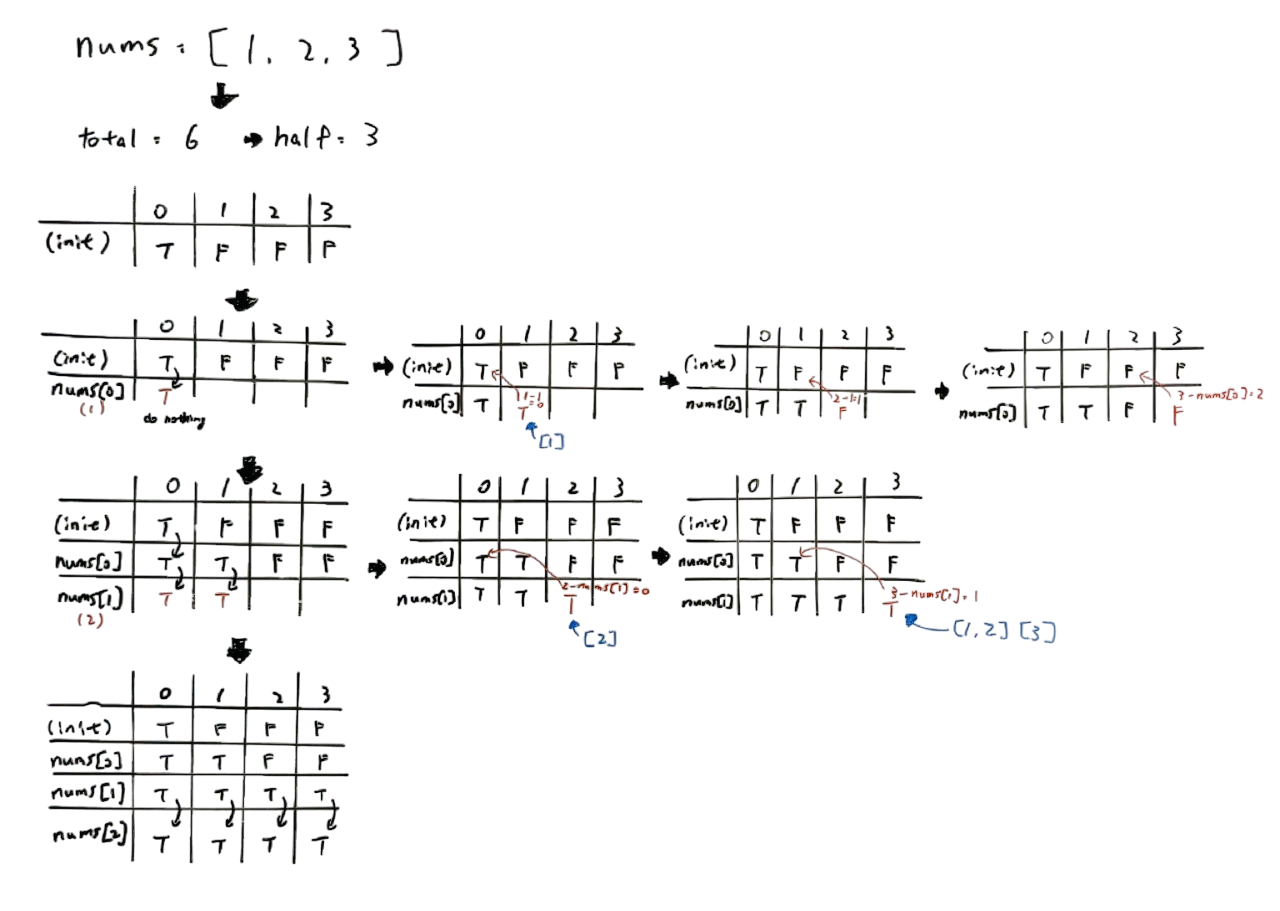 nums = [ 1, 2, 3 ]
total = 6 → half = 3
0 1 2 3
(init) T F F F
0 1 2 3
(init) T F F F
nums[0] T
(1)
do nothing
0 1 2 3
(init) T F F F
nums[0] T 1-1=0
T
[1]
0 1 2 3
(init) T F F F
nums[0] T T 2-1=1
F
0 1 2 3
(init) T F F F
3-nums[0]=2
nums[0] T T F F
0 1 2 3
(init) T F F F
nums[0] T T F F
nums[1] T T
(2)
0 1 2 3
(init) T F F F
nums[0] T T F F
2-nums[1]=0
nums[1] T T T
[2]
0 1 2 3
(init) T F F F
nums[0] T T F F
3-nums[1]=1
nums[1] T T T T
[1,2] [3]
0 1 2 3
(init) T F F F
nums[0] T T F F
nums[1] T T T T
nums[2] T T T T